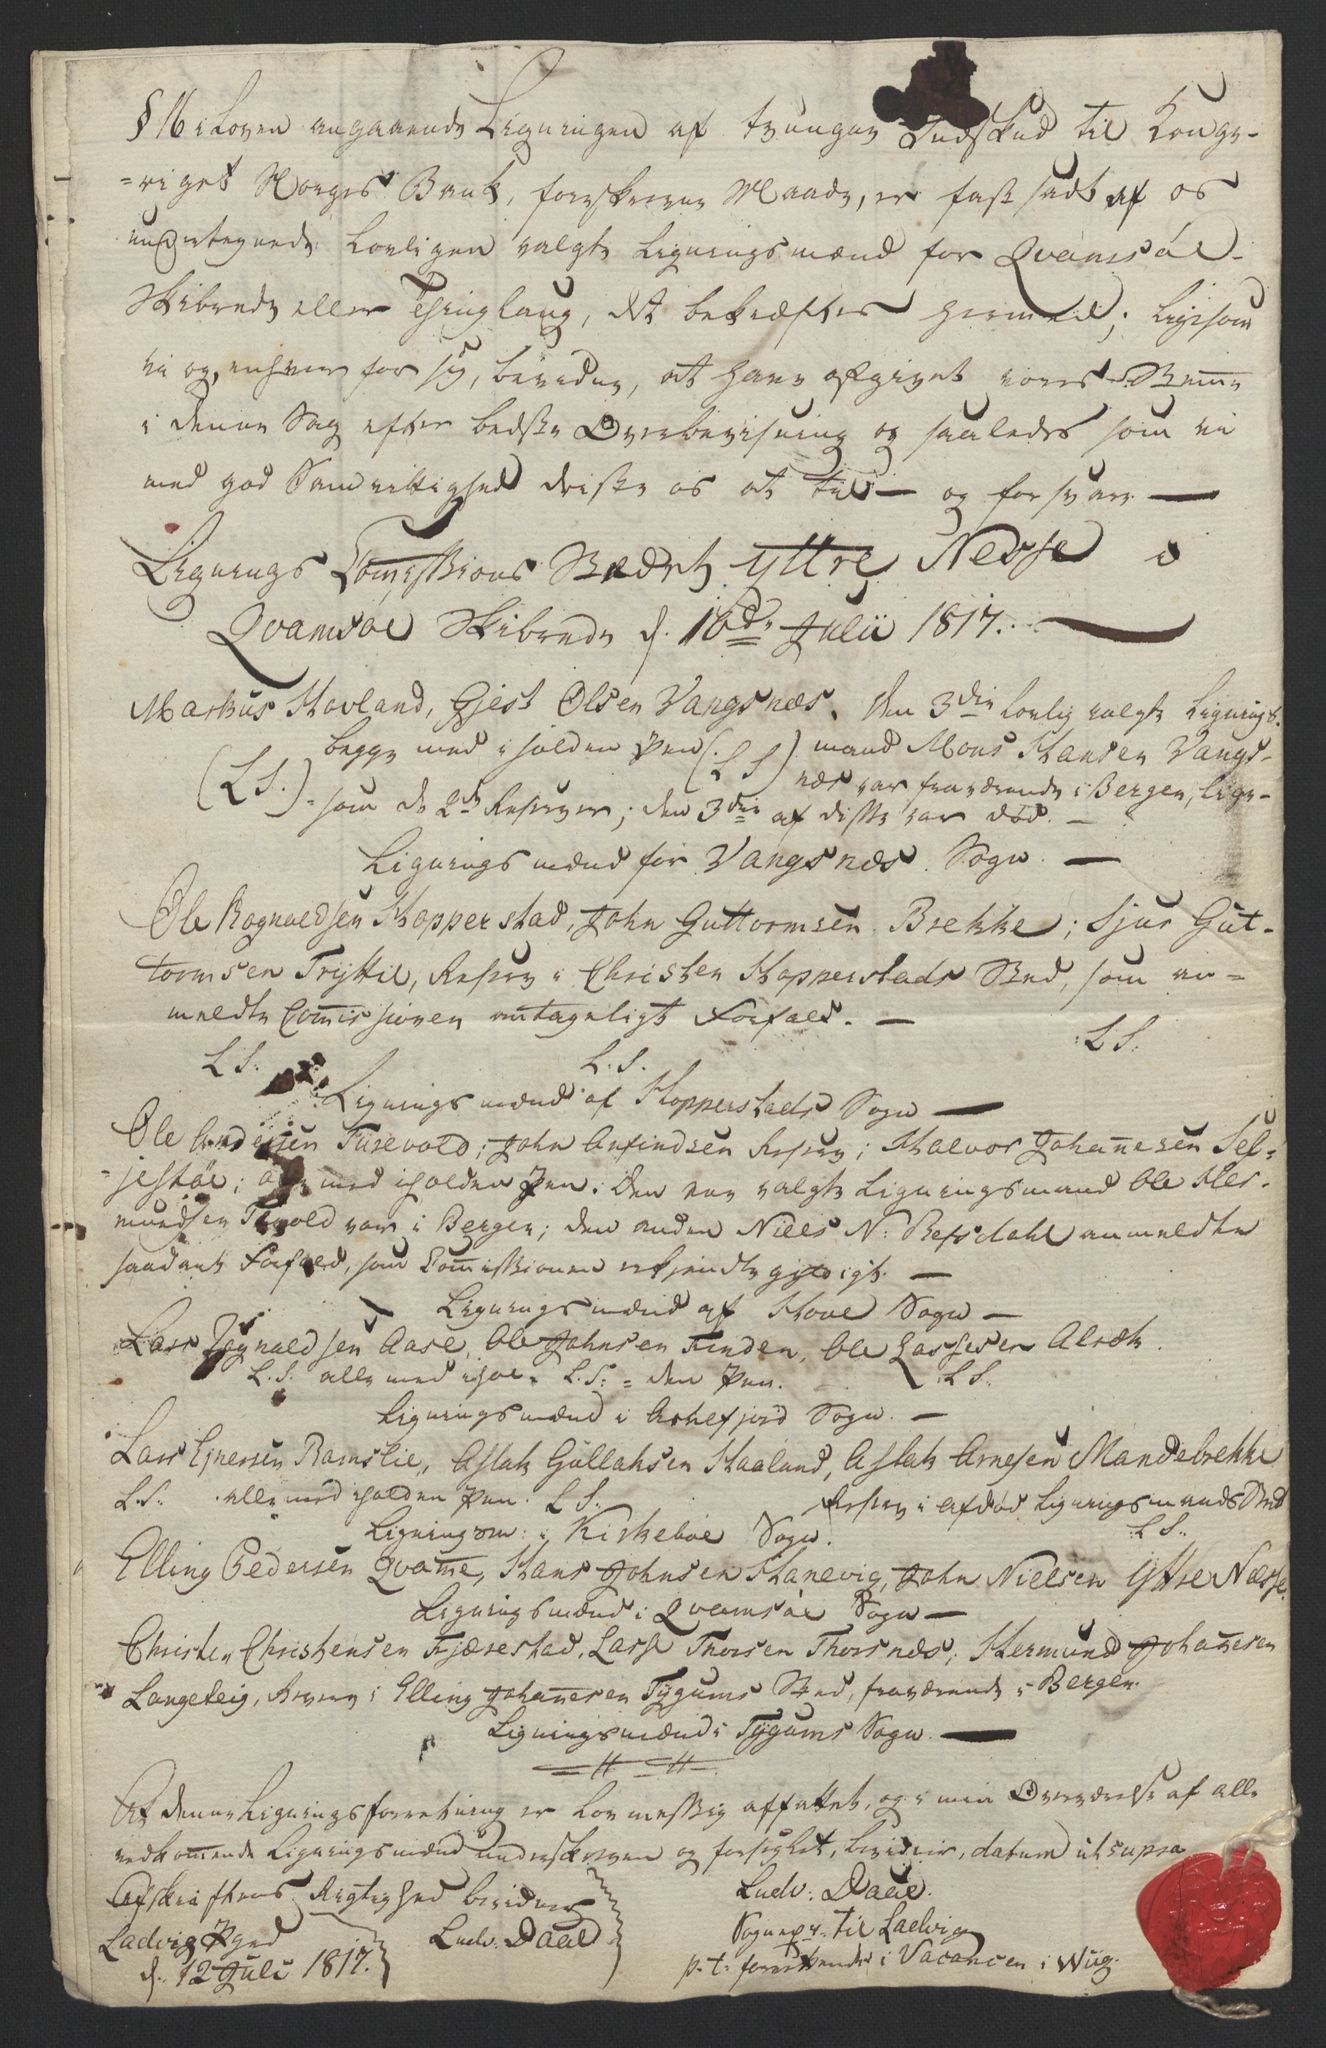 §16 i Loven angaaende Ligningen af tvungne Indskud til Konge-
=riget Norges Bank, foreskrevne Maade, er fast sadt af os
undertegnede lovligen valgte Ligningsmænd for Qvamsöe
Skibrede eller Thinglaug, det bekræftes hermed; ligesom
vi og, enhver for sig, bevidne, at have afgivet vores Stemme
i denne Sag efter bedste Overbeviisning og saaledes som vi
med god Samvittighed driste os at til — og forsvare —
Lignings Commissions Stædet Yttre Nesse i
Qvamsöe Skibrede d. 10de Julii 1817. —
Markus Hovland, Gjest Olsen Vangsnæs. Den 3die lovlig valgte Lignings-
begge med i holden Pen (L S) mand Mons Hansen Vangs-
(L S.) næs var fraværende i Bergen, lige-
= som de 2de Reserver; den 3die af disse var död. —
Ligningsmænd for Vangsnæs Sogn. —
Ole Rognaldsen Hopperstad, John Guttormsen Brekke; Sjur Gut-
tormsen Tryttie, Reserv i Christen Hopperstads Sted, som an=
meldte Commissionen antageligt Forfald. —
L S. L. S. L S.
Ligningsmænd af Hopperstads Sogn —
Ole Andersen Turevold; John Anfindsen Reserv; Halvor Johannesen Sel-
jestöe; alle med iholden Pen. Den ene valgte Ligningsmand Ole Her-
mundsen var i Bergen; den anden Niels N: anmeldte
saadant Forfald, som Commissionen erkjendte gyldigt. —
Ligningsmænd af Hove Sogn —
Lars Rognaldsen Aase, Ole Johnsen Finden, Ole Lassesen
L. S. alle med ihol- L. S. = den Pen. L S.
Ligningsmænd i Arnefjord Sogn. —
Lars Iversen Ramslie, Aslak Gullaksen Haaland, Aslak Arnesen Mandebrekke
L. S. alle med iholden Pen. L S. Reserv i afdöd Ligningsmands Sted
L S.
Ligningsm: i Kirkeböe Sogn.
Elling Pedersen Qvamme, Hans Johnsen Hanevig, John Nielsen Yttre Næsse.
Ligningsmænd i Qvamsöe Sogn —
Christen Christensen Fjærestad, Lasse Thorsen Thorsnæs, Hermund Johannesen
Langeteig, Reserv i Elling Johannesen Tygums Sted, fraværende i Bergen.
Ligningsmænd i Tygums Sogn. —
At denne Ligningsforretning er lovmessig affattet, og i min Overværelse af alle
vedkommende Ligningsmænd underskreven og forseglet, bevidner, datum ut supra
Afskriftens Rigtighed bevidner Ludv: Daae.
Ladvig Pgd Ludv. Daae Sognepr. til Ladvig
d. 12 Juli 1817. p. t. forrettende i Vacancen i Wiig.